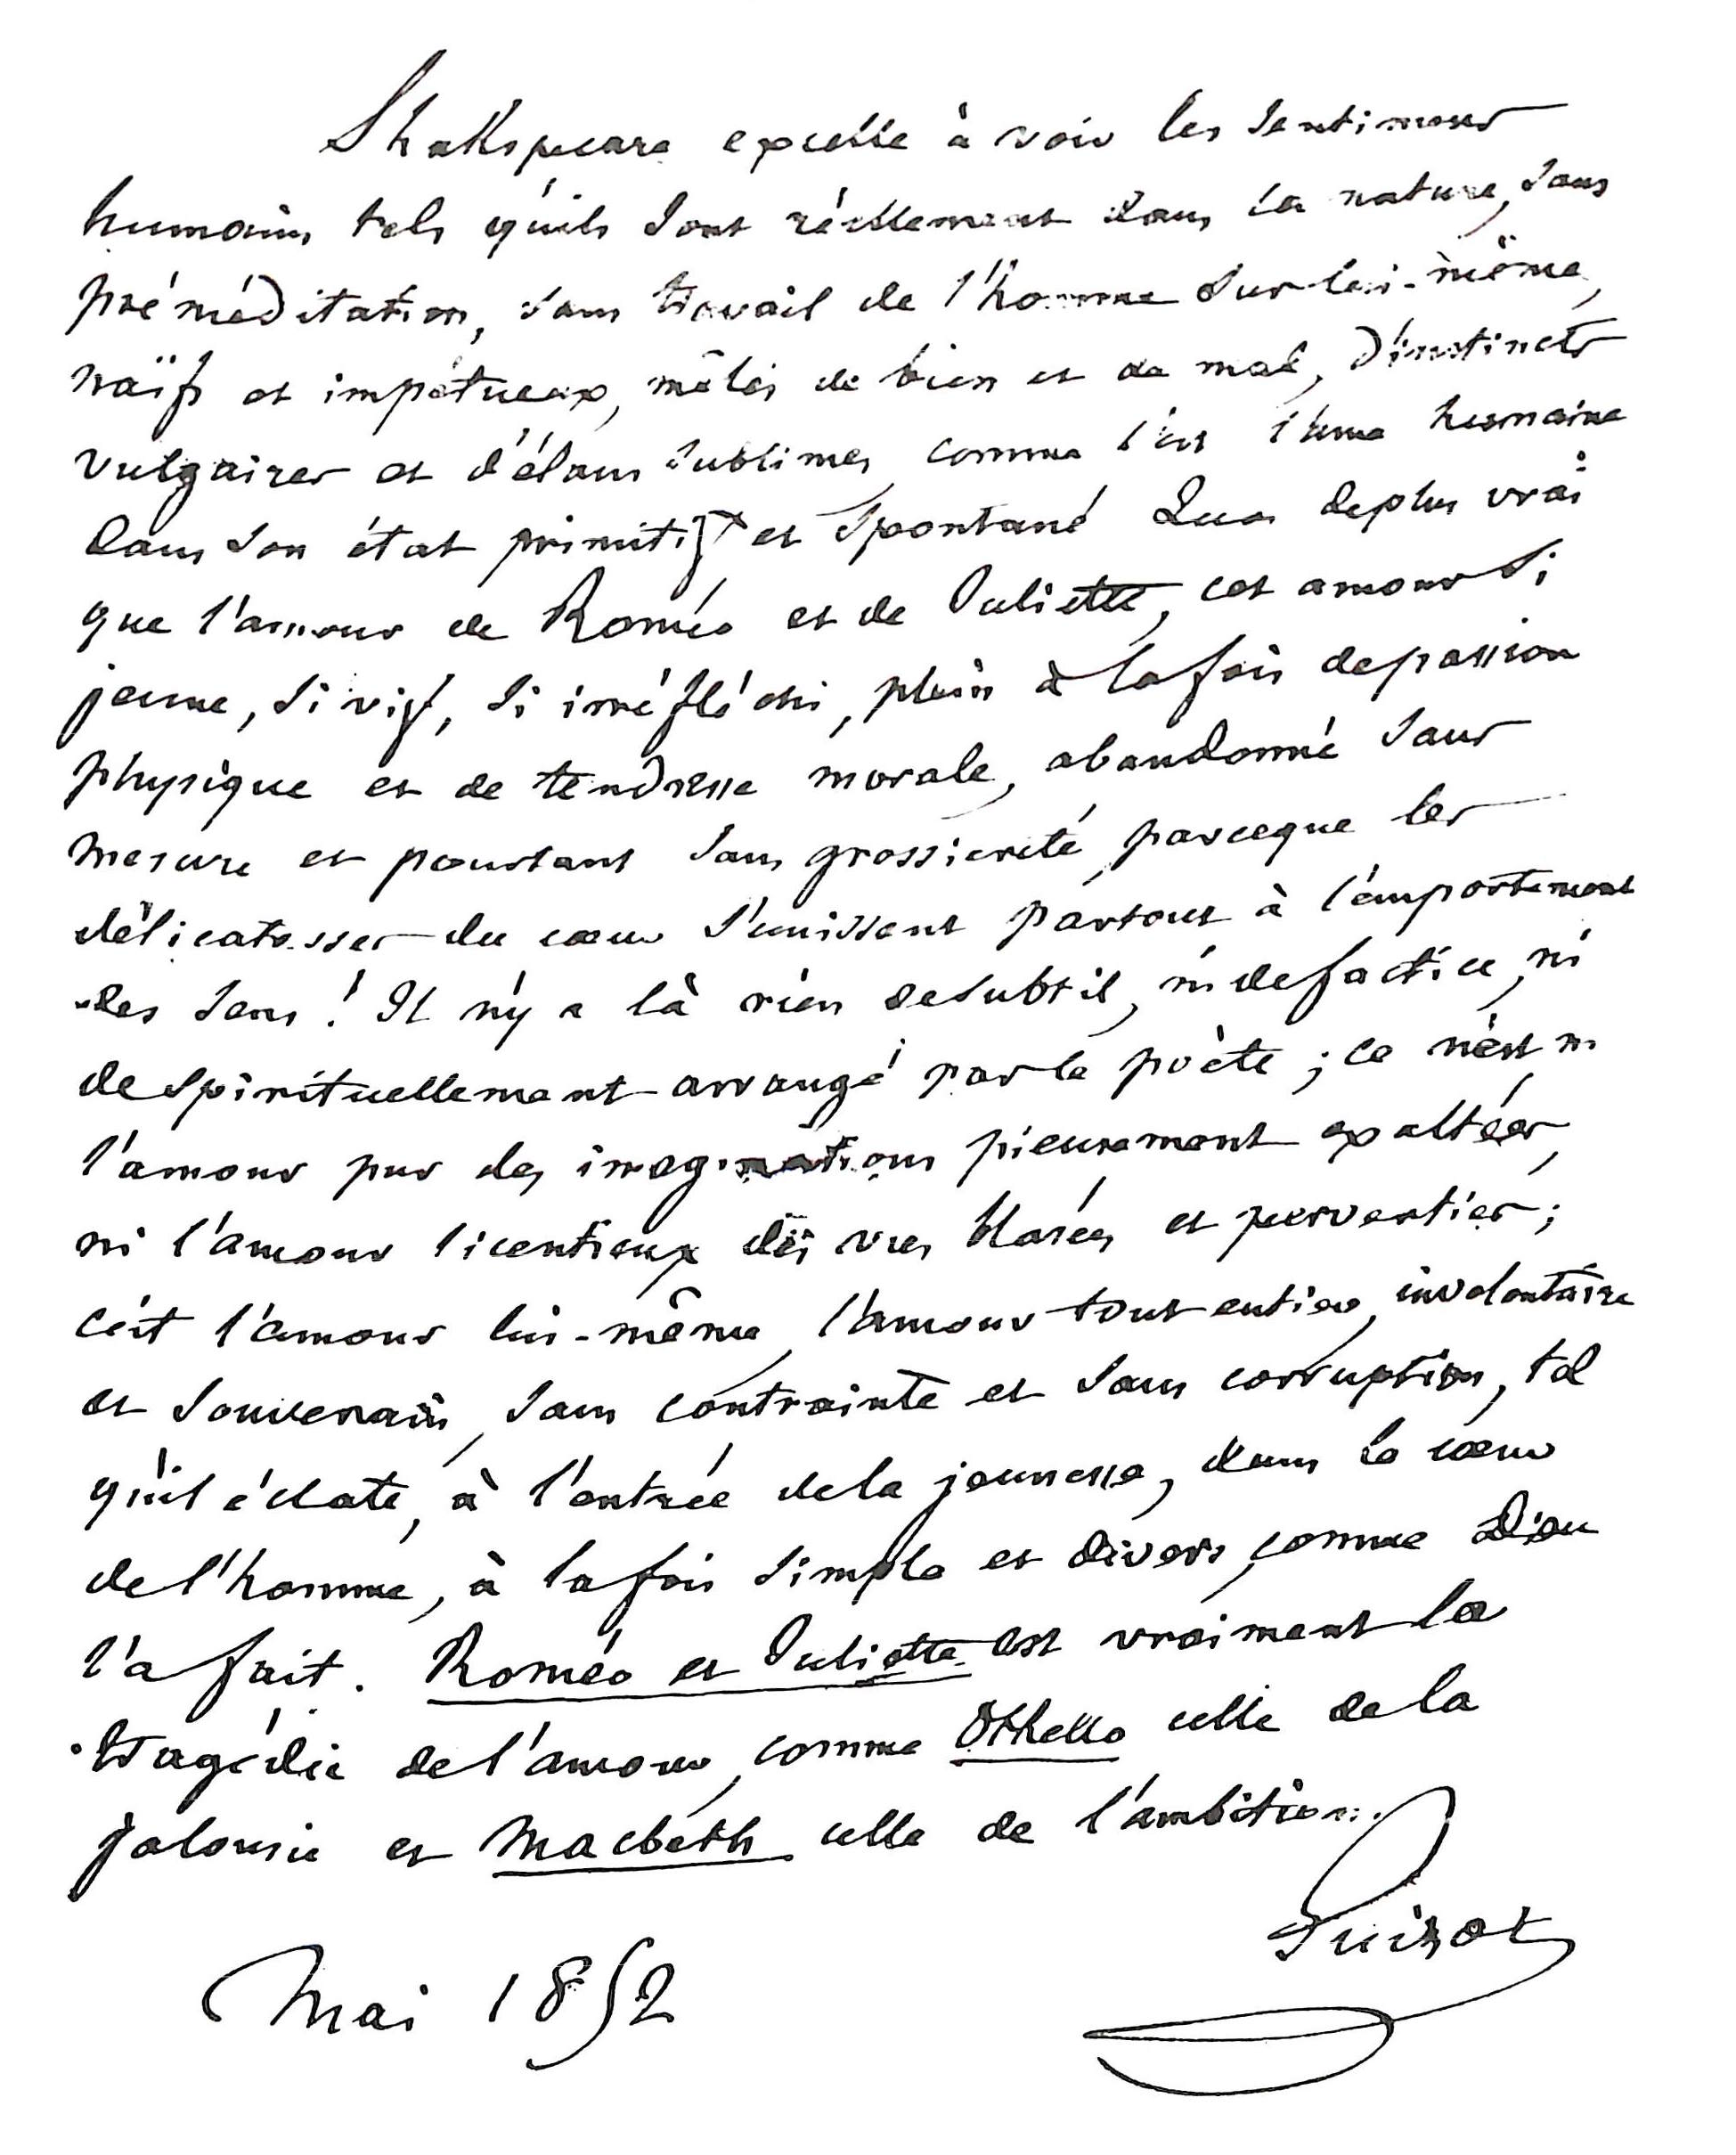 Shakspeare excelle à voir les sentimens
humains tels qu'ils sont réellement dans la nature, sans
préméditation, sans travail de l'homme sur lui-même,
naïfs et impétueux, mêlés de bien et de mal, d'instincts
vulgaires et d'élans sublimes, comme l'est l'âme humaine
dans son état primitif et spontané. Quoi de plus vrai
que l'amour de Roméo et de Juliette, cet amour si
jeune, si vif, si irréfléchi, plein à la fois de passion
physique et de tendresse morale, abandonné sans
mesure et pourtant sans grossiereté, parceque les
délicatesses du cœur s'unissent partout à l'emportement
des sens ! Il n'y a là rien de subtil, ni de factice, ni
de spirituellement arrangé par le poète ; ce n'est ni
l'amour pur des imaginations pieusement exaltées,
ni l'amour licentieux des vies blasées et perverties ;
c'est l'amour lui-même, l'amour tout entier, involontaire
et souverain, sans contrainte et sans corruption, tel
qu'il éclate, à l'entrée de la jeunesse, dans le cœur
de l'homme, à la fois simple et divers, comme Dieu
l'a fait. Roméo et Juliette est vraiment la
tragédie de l'amour, comme Othello celle de la
jalousie et Macbeth celle de l'ambition.
Guizot
Mai 1852